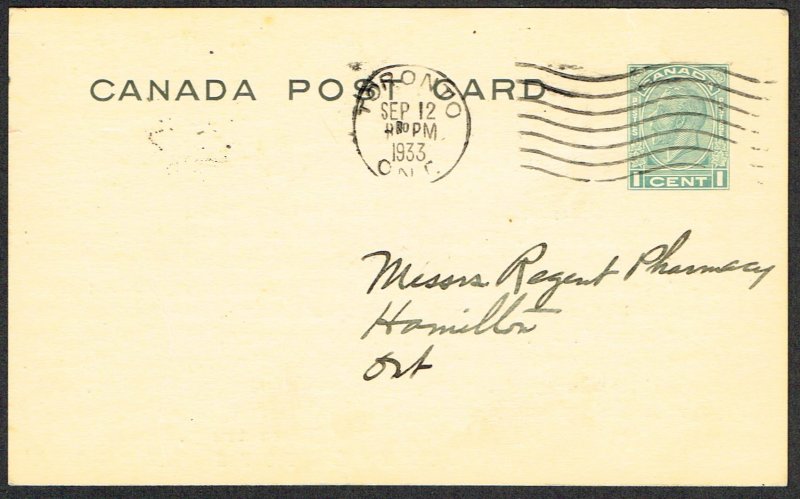 CANADA POST CARD
TORONTO
SEP 12
30 PM
1933
ONT.
CANADA
1 CENT 1
Messrs Regent Pharmacy
Hamilton
Ont